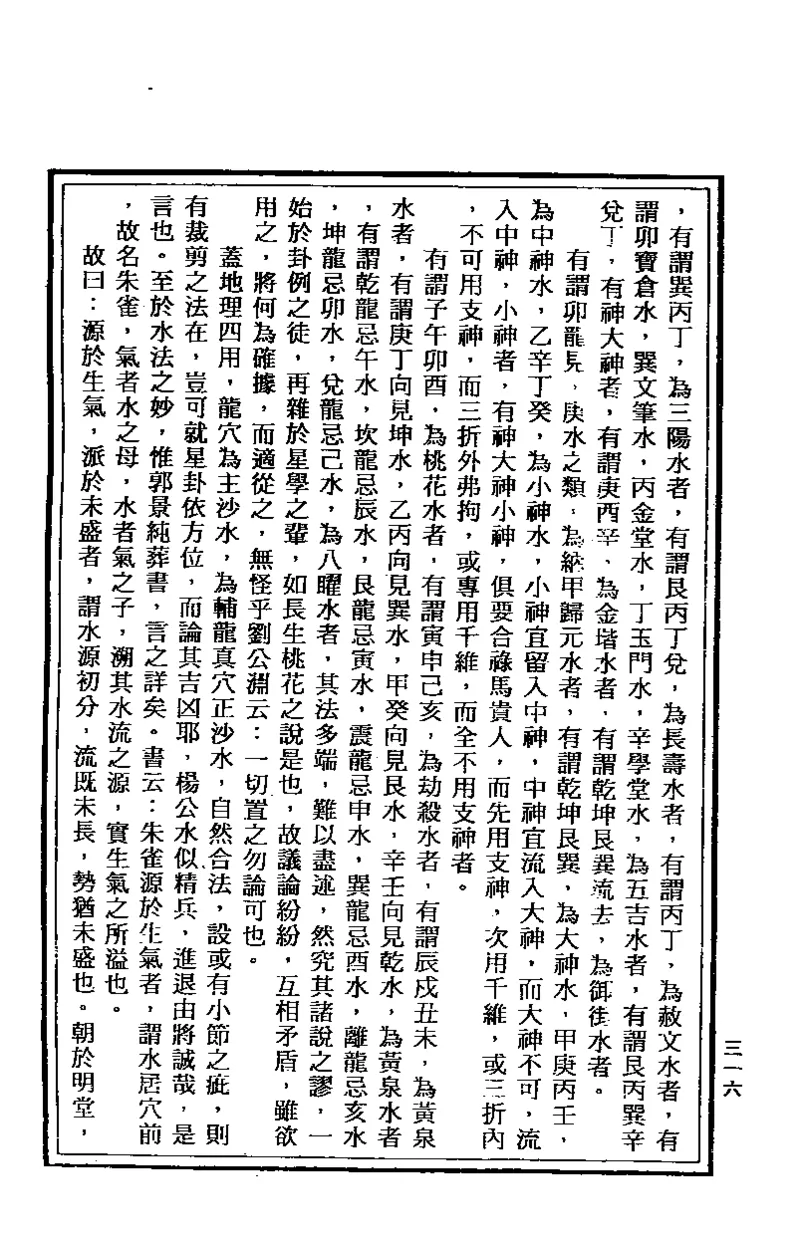 ，有謂巽丙丁，為三陽水者，有謂艮丙丁兌，為長壽水者，有謂丙丁，為赦文水者，有
謂卯寶倉水，巽文筆水，丙金堂水，丁玉門水，辛學堂水，為五吉水者，有謂艮丙巽辛
兌丁，有神大神者，有謂庚酉辛、為金堦水者，有謂乾坤艮巽流去，為御街水者。
有謂卯龍見、庚水之類，為納甲歸元水者，有謂乾坤艮巽，為大神水，甲庚丙壬，
為中神水，乙辛丁癸，為小神水，小神宜留入中神，中神宜流入大神，而大神不可，流
入中神，小神者，有神大神小神，俱要合祿馬貴人，而先用支神，次用千維，或三折內
，不可用支神，而三折外弗拘，或專用千維，而全不用支神者。
有謂子午卯酉，為桃花水者，有謂寅申己亥，為劫殺水者，有謂辰戌丑未，為黃泉
水者，有謂庚丁向見坤水，乙丙向見巽水，甲癸向見艮水，辛壬向見乾水，為黃泉水者
，有謂乾龍忌午水，坎龍忌辰水，艮龍忌寅水，震龍忌申水，巽龍忌酉水，離龍忌亥水
，坤龍忌卯水，兌龍忌己水，為八曜水者，其法多端，難以盡述，然究其諸說之謬，一
始於卦例之徒，再雜於星學之輩，如長生桃花之說是也，故議論紛紛，互相矛盾，雖欲
用之，將何為確據，而適從之，無怪乎劉公淵云：一切置之勿論可也。
蓋地理四用，龍穴為主沙水，為輔龍真穴正沙水，自然合法，設或有小節之疵，則
有裁剪之法在，豈可就星卦依方位，而論其吉凶耶，楊公水似精兵，進退由將誠哉，是
言也。至於水法之妙，惟郭景純葬書，言之詳矣。書云：朱雀源於生氣者，謂水居穴前
，故名朱雀，氣者水之母，水者氣之子，溯其水流之源，實生氣之所溢也。
故曰：源於生氣，派於未盛者，謂水源初分，流既未長，勢猶未盛也。朝於明堂，
三一六